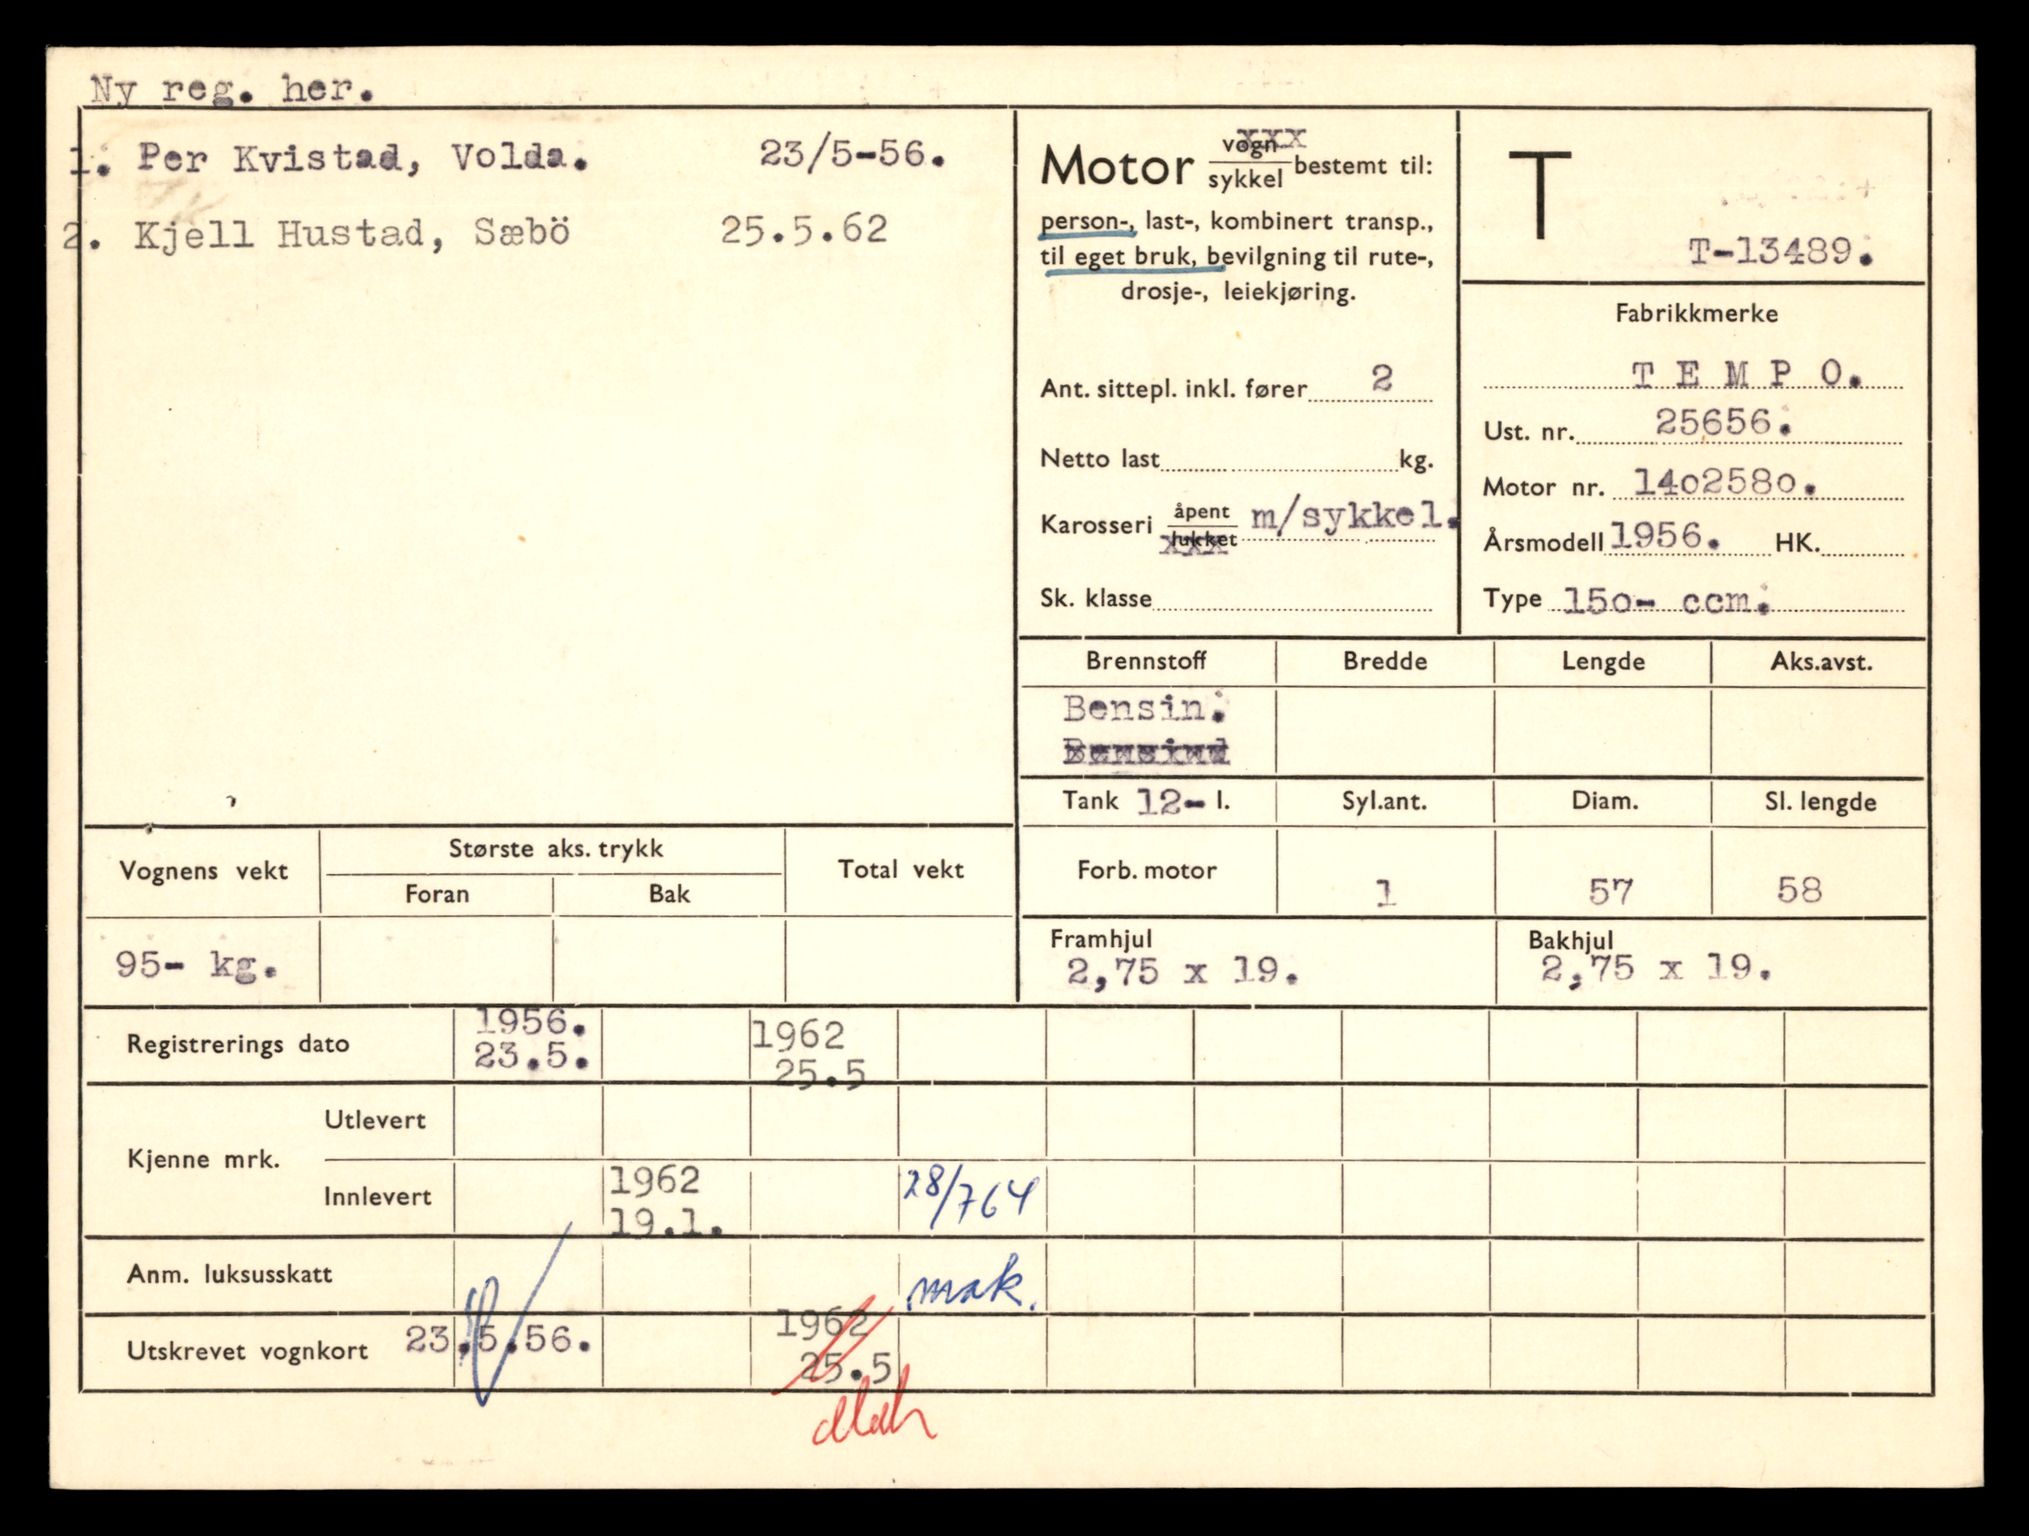 Ny reg. her.
1. Per Kvistad, Volda. 23/5-56.
2. Kjell Hustad, Sæbö 25.5.62
Motor vogn/sykkel bestemt til:
xxx
person-, last-, kombinert transp.,
til eget bruk, bevilgning til rute-,
drosje-, leiekjøring.
Ant. sittepl. inkl. fører 2
Netto last kg.
Karosseri åpent/lukket m/sykkel.
xxx
Sk. klasse
T
T-13489.
Fabrikkmerke
T E M P O.
Ust. nr. 25656.
Motor nr. 14o258o.
Årsmodell 1956. HK.
Type 15o- ccm.
Brennstoff Bredde Lengde Aks.avst.
Bensin.
Tank 12- l. Syl.ant. Diam. Sl. lengde
Forb. motor 1 57 58
Framhjul Bakhjul
2,75 x 19. 2,75 x 19.
Vognens vekt Største aks. trykk Total vekt
Foran Bak
95- kg.
Registrerings dato 1956. 1962
23.5. 25.5
Kjenne mrk.
Utlevert
Innlevert 1962 28/7 64
19.1.
Anm. luksusskatt mak.
Utskrevet vognkort 23.5.56. 1962
25.5